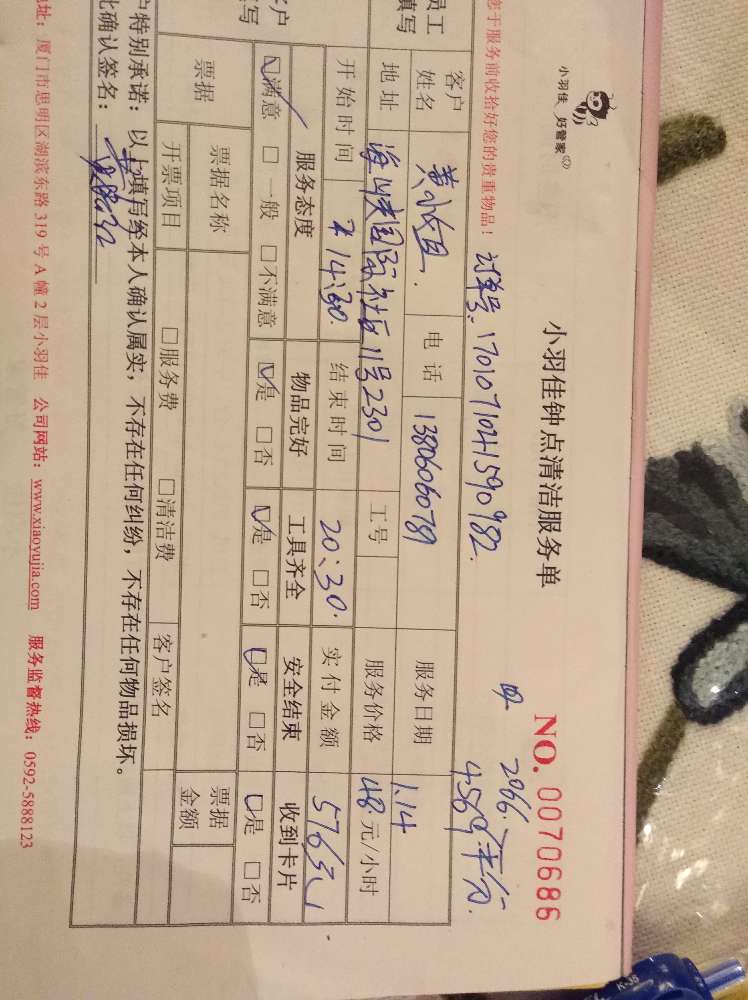 小羽佳 好管家
小羽佳钟点清洁服务单
NO. 0070686
您于服务前收拾好您的贵重物品!
订单号: 1701071041590982.
员工
填写
客户
姓名
黄小姐.
电话
13806060789
服务日期
1.14
地址
海峡国际社区11号2301
工号
服务价格
48.元/小时
开始时间
14:30.
结束时间
20:30.
实付金额
576元
客户
填写
服务态度
物品完好
工具齐全
安全结束
收到卡片
☑满意 □一般 □不满意
☑是 □否
☑是 □否
☑是 □否
☑是 □否
票据
票据名称
票据
金额
开票项目
□服务费 □清洁费
客户签名
户特别承诺: 以上填写经本人确认属实, 不存在任何纠纷, 不存在任何物品损坏。
此确认签名:
地址: 厦门市思明区湖滨东路 319 号 A 幢 2 层小羽佳 公司网站: www.xiaoyujia.com 服务监督热线: 0592-5888123
K-35